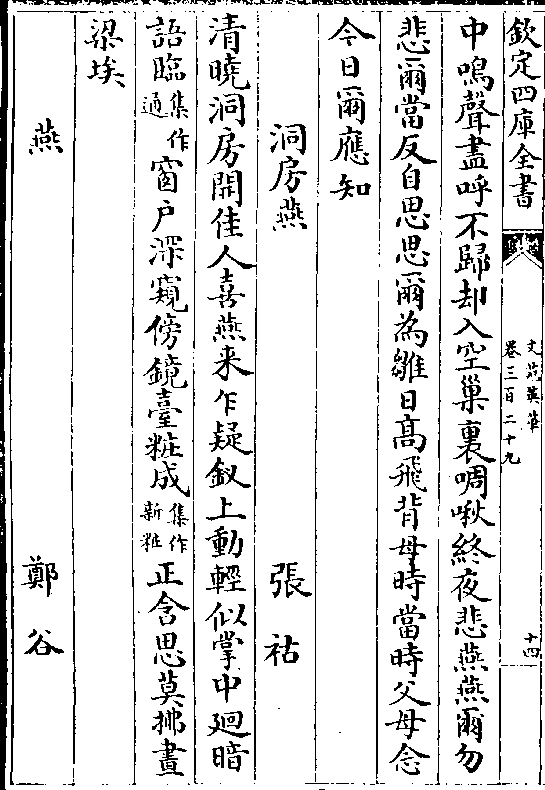 欽定四庫全書
文苑英華
卷三百二十九
十四
中鳴聲盡呼不歸却入空巢裏啁啾終夜悲燕燕爾勿
悲爾當反自思思爾為雛日髙飛背母時當時父母念
今日爾應知
洞房燕 張祜
清曉洞房開佳人喜燕来乍疑釵上動輕似掌中廻暗
語臨集作通窗户深窺傍鏡臺粧成集作新粧正含思莫拂畫
梁埃
燕 鄭谷